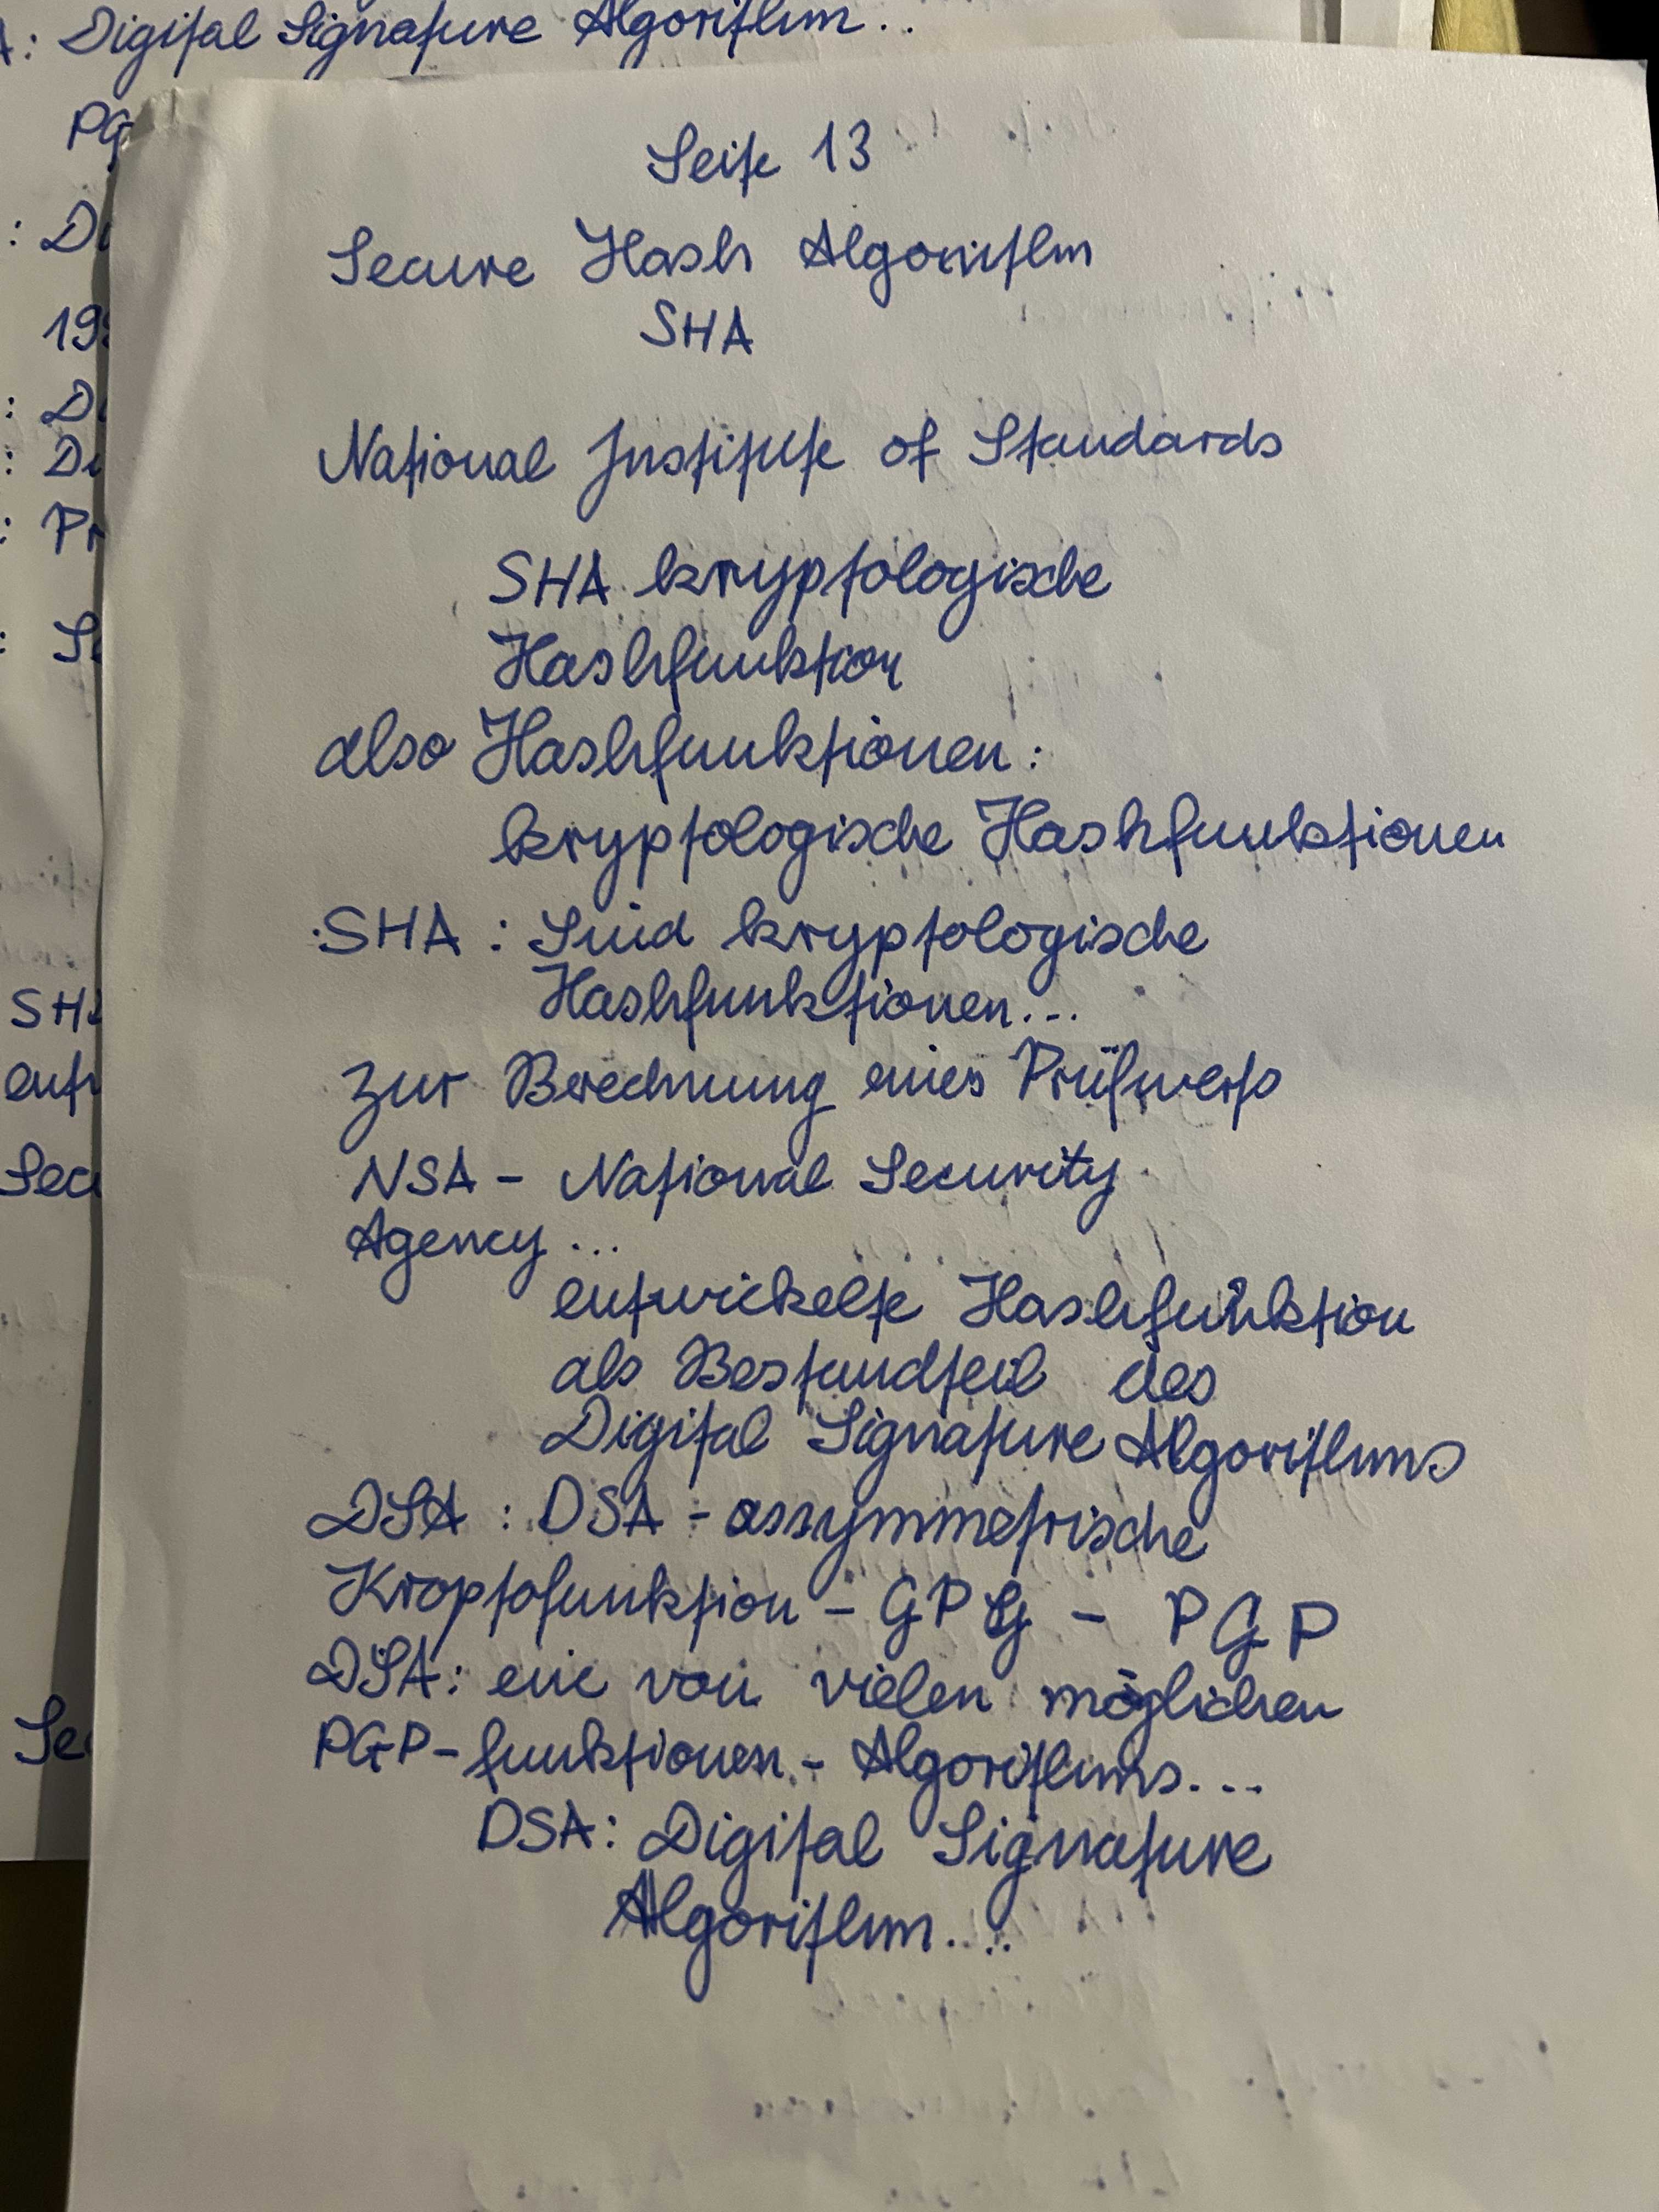 : Digital Signature Algorithm..
PG
: Di
19
: Di
: Di
: Pr
: Se
SHA
entw
Secu
Sec
Seite 13
Secure Hash Algorithm
SHA
National Institute of Standards
SHA kryptologische
Hashfunktion
also Hashfunktionen:
kryptologische Hashfunktionen
SHA: Sind kryptologische
Hashfunktionen...
zur Berechnung eines Prüfwerts
NSA - National Security
Agency...
entwickelte Hashfunktion
als Bestandteil des
Digital Signature Algorithms
DSA: DSA - assymmetrische
Kroptofunktion - GPG - PGP
DSA: eine von vielen möglichen
PGP-funktionen - Algorithms...
DSA: Digital Signature
Algorithm....